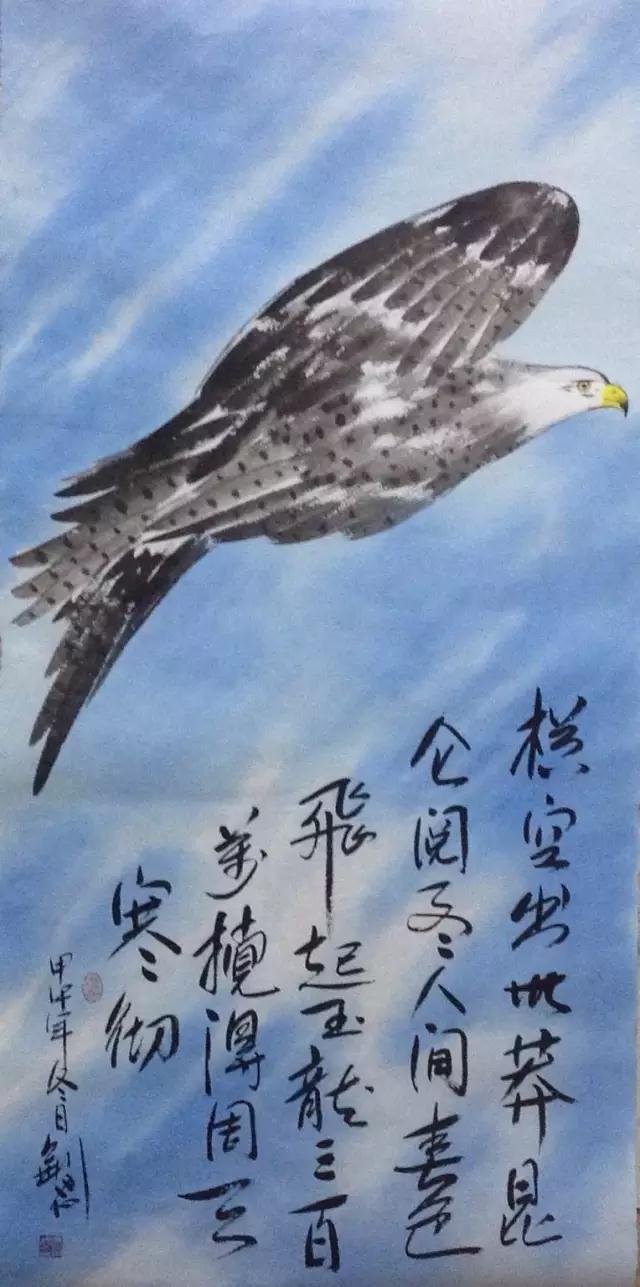 横空出世莽昆
仑阅尽人间春色
飛起玉龍三百
萬搅得周天
寒彻
甲午年冬日